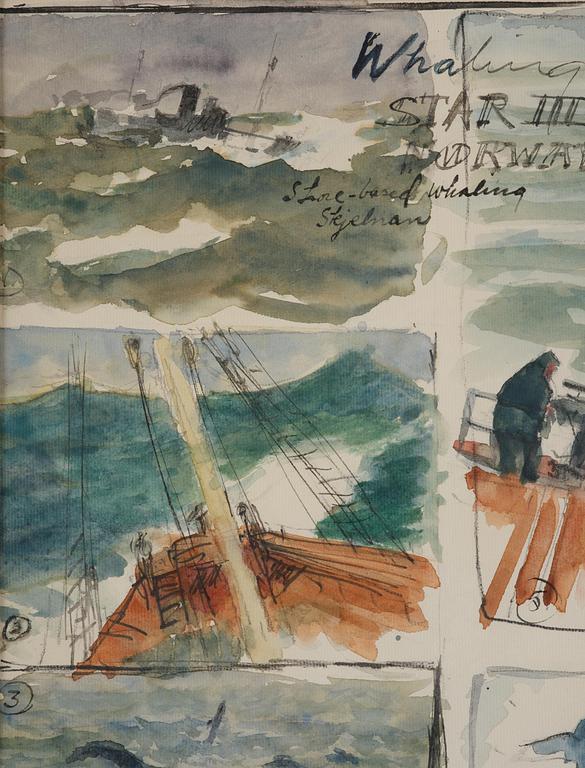 Whaling
STAR III
NORWAY
Shore-based Whaling
Skjelnan
2
3
5